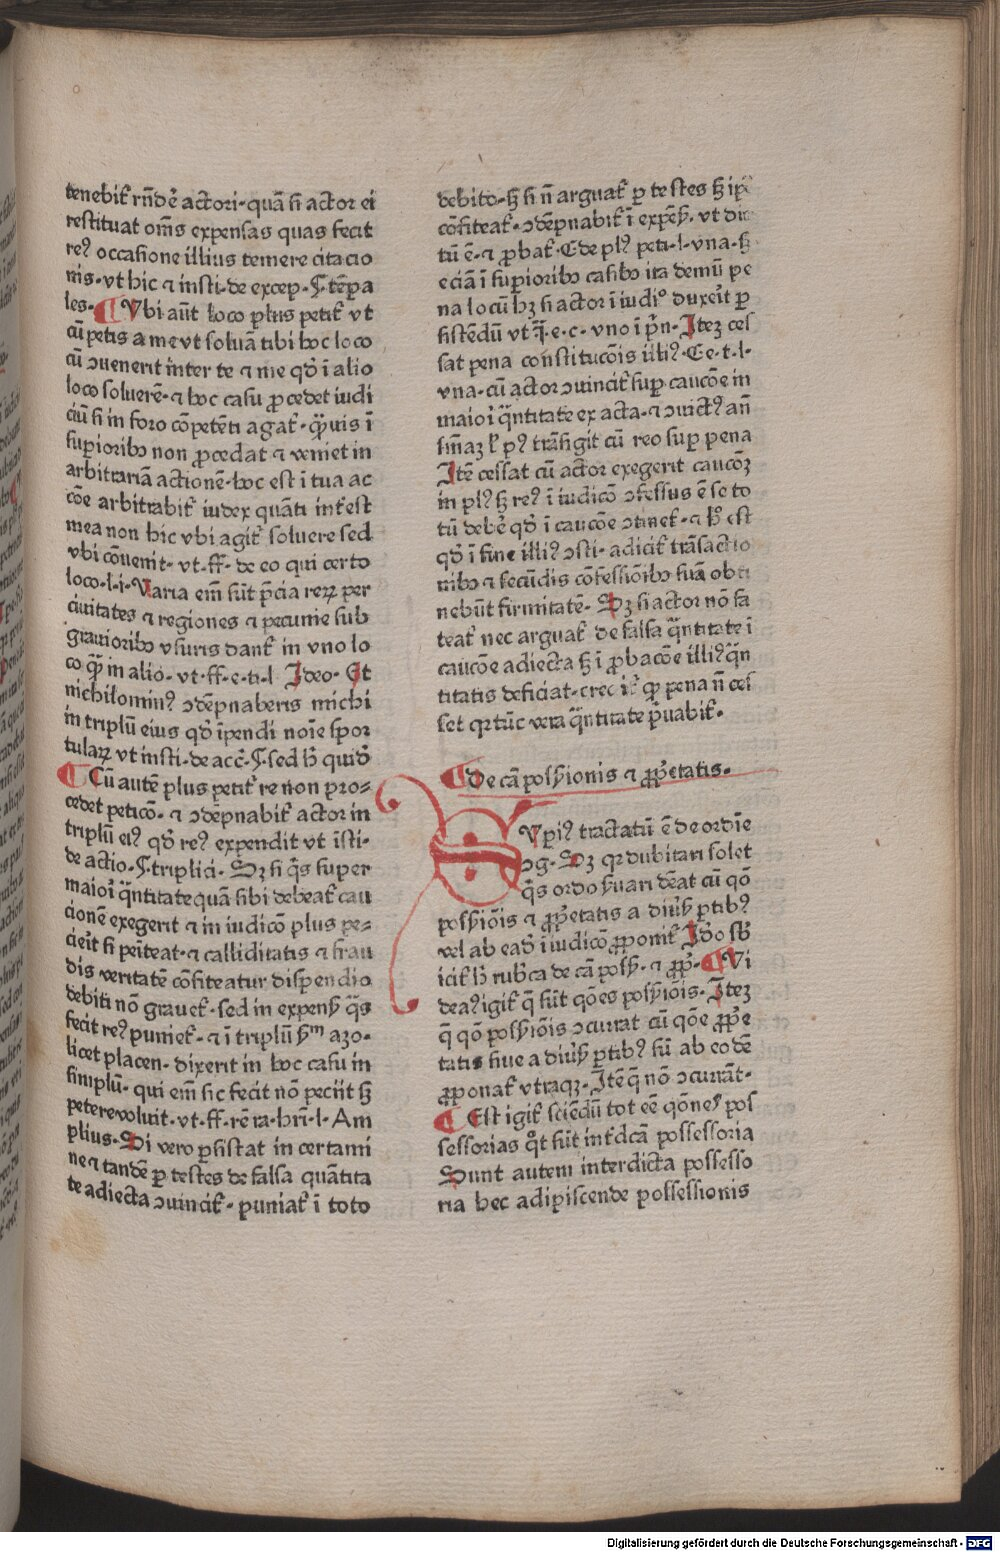 tenebit᷑ rn̄dẽ actori·quā si actor ei
restituat om̄s expensas quas fecit
reꝰ occasione illius temere citacio
nis·vt hic ⁊ insti·de excep·§·tēpa
les· ¶ Vbi aūt loco plus petit᷑ vt
cū petis a me vt soluā tibi hoc loco
cū ɔuenerit inter te ⁊ me qd̛ ī alio
loco soluerē·⁊ hoc casu ꝓcedet iudi
ciū si in foro cōpetēti agat᷑·q̄uis ī
superioribꝰ non ꝓcedat ⁊ veniet in
arbitrariā actionē·hoc est i tua ac
cōe arbitrabit᷑ iudex quāti int᷑est
mea non hic vbi agit᷑ soluere sed
vbi cōuenit·vt·ff·de eo qui certo
loco·l·i·Varia em̄ sūt p̄cia reꝝ per
ciuitates ⁊ regiones ⁊ pecunie sub
grauioribꝰ vsuris dant᷑ in vno lo
co q̄ in alio·vt·ff·e·ti·l· Ideo· Et
nichilominꝰ ɔdēpnaberis michi
in triplū eius qd̛ īpendi noīe spor
tulaꝝ vt insti·de acc̄·§·sed h̛ quid̛
¶ Cū autē plus petit᷑ re non pro-
cedet peticō·⁊ ɔdēpnabit᷑ actor in
triplū eiꝰ qd̛ reꝰ expendit vt īsti·
de actio·§·triplici·Sꝫ si q̄s super
maiori q̄ntitate quā sibi debeat᷑ cau
cionē exegerit ⁊ in iudicō plus pe-
cierit si peīteat·⁊ calliditatis ⁊ frau
dis veritatē cōfiteatur dispendio
debiti nō grauet᷑·sed in expenš q̄s
fecit reꝰ puniet᷑·⁊ ī triplū šm azo·
licet placen·dixerit in hoc casu in
simplū·qui em̄ sic fecit nō peciit sꝫ
petere voluit·vt·ff·rē ra·hr̄i·l·Am
plius·Si vero ꝑsistat in certami
ne ⁊ tandē ꝑ testes de falsa quātita
te adiecta ɔuincit᷑·puniat᷑ ī toto
debito·sꝫ si n̄ arguat᷑ ꝑ testes sꝫ ip̄
cōfiteat᷑·ɔdēpnabit᷑ ī expenš·vt dic
tū ē·⁊ ꝓbat᷑·C de plꝰ peti·l·vna·sꝫ
eciā ī superioribꝰ casibꝰ ita demū pe
na locū hꝫ si actor ī iudiº duxerit ꝑ
sistēdū vt q̄·e·c·vno ī p̄n·Itez ces
sat pena constitucōis illiꝰ·C e·t·l·
vna·cū actor ɔuincit᷑ suꝑ caucōe in
maiori q̄ntitate ex acta·⁊ ɔuictꝰ an̄
sn̄iaz l̛ pꝰ trāsigit cū reo suꝑ pena
Itē cessat cū actor exegerit caucōz
in plꝰ sꝫ reꝰ ī iudicō ɔfessus ē se to
tū debē qd̛ ī caucōe ɔtinet᷑·⁊ h̛ est
qd̛ ī fine illiꝰ ɔsti·adicit᷑ trāsactio
nibꝰ ⁊ secūdis cōfessiōibꝰ suā obti
nebūt firmitatē·Sꝫ si actor nō fa
teat᷑ nec arguat᷑ de falsa q̄ntitate ī
caucōe adiecta sꝫ ī ꝓbacōe illiꝰ q̄n
titatis deficiat·credit᷑ ꝙ pena n̄ ces
set qꝛ tūc vera q̄ntitate p̄uabit᷑·
¶ De cā possionis ⁊ ꝓp̄etatis·
SVpiꝰ tractatū ē de ordīe
ɔg·Sꝫ qꝛ dubitari solet
q̄s ordo s̄uari dēat cū qō
possiōis ⁊ ꝓp̄etatis a diūš ꝑtibꝰ
vel ab eadē ī iudicō ꝓponit᷑ Idō sb̛
icit᷑ h̛ rubrica de cā poss·⁊ ꝓp̄· ¶ Vi
deaꝰ igit᷑ q̄ sūt qōes possiōis·Itez
q̄ qō possiōis ɔcurrat cū qōe ꝓp̄e
tatis siue a diūš ꝑtibꝰ siū ab eodē
ꝓponat᷑ vtraqꝫ·Itē q̄ nō ɔcurrāt·
¶ Est igit᷑ sciēdū tot eē qōnes pos
sessorias qͦt sūt int᷑dcā possessoria
Sunt autem interdicta possesso
ria hec adipiscende possessionis
Digitalisierung gefördert durch die Deutsche Forschungsgemeinschaft - DFG